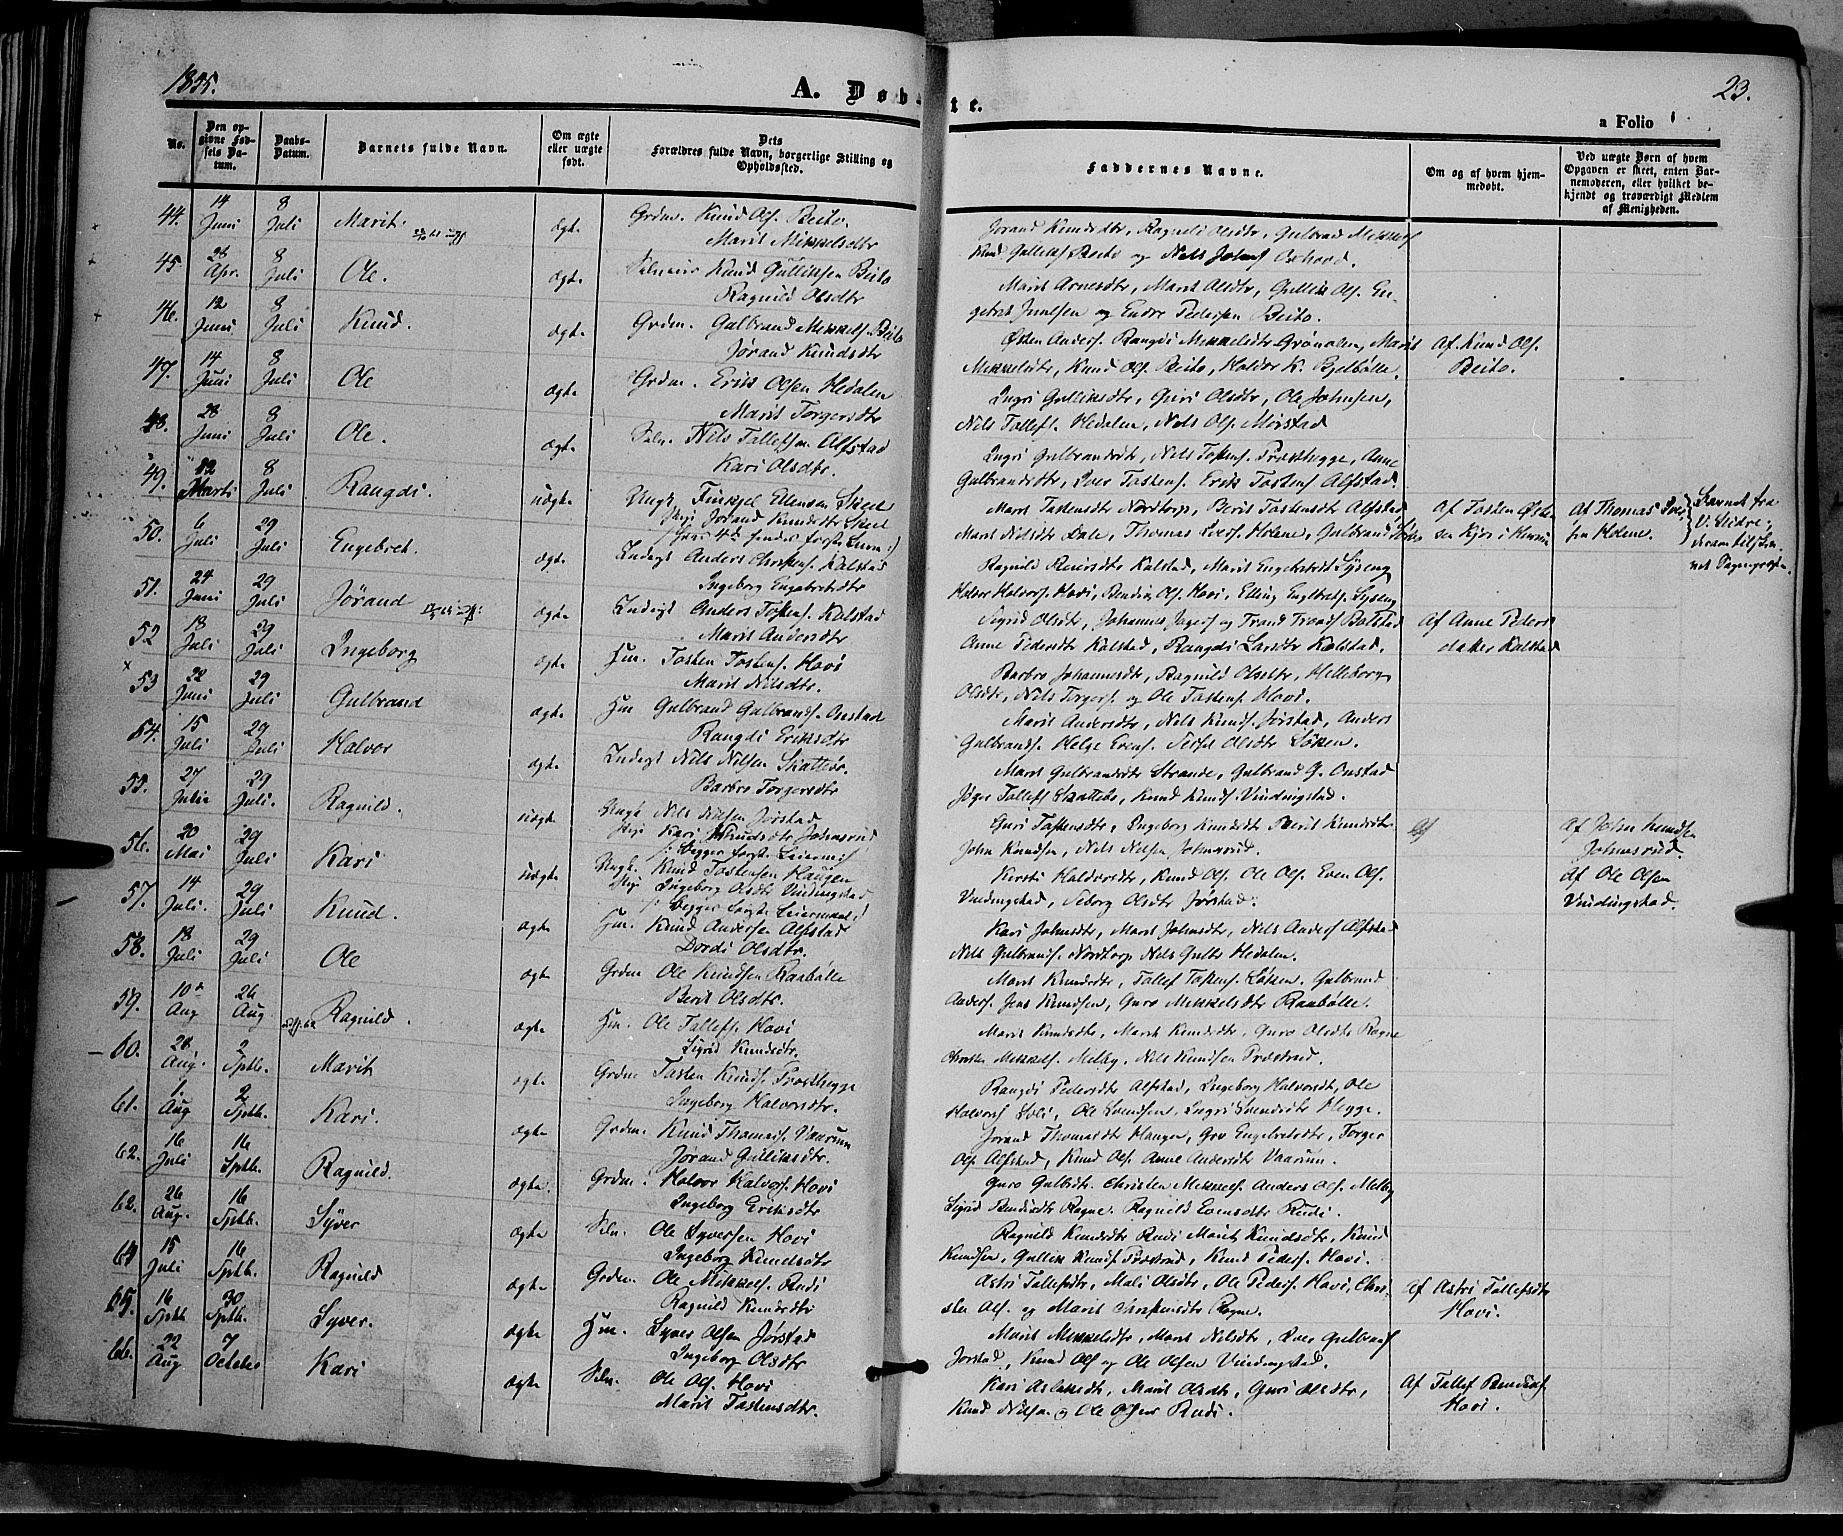 1855.
A. Døb
te.
23.
a Folio
No.
Den op-
givne Fød-
sels Da-
tum.
Daabs-
Datum.
Barnets fulde Navn.
Om ægte
eller uægte
født.
Dets
Forældres fulde Navn, borgerlige Stilling og
Opholdssted.
Faddernes Navne.
Om og af hvem hjem-
medøbt.
Ved uægte Børn af hvem
Opgaven er skeet, enten Bar-
nemoderen, eller hvilket be-
kjendt og troværdigt Medlem
af Menigheden.
44. 14 Juni 8 Juli Marit. ægte Grdm. Knud Ols. Beito.
Marit Mikkelsdtr
Jørand Knudsdtr, Ragnild Olsdtr, Gulbrand Mikkels.
Knud Gulliks. Beito og Nels Johns.
45. 28 Apr. 8 Juli Ole. ægte Knud Gulliksen Beito
Ragnild Olsdtr
Marit Arnesdtr, Marit Olsdtr, Gullik Ols. En-
gebret Jensen og Endre Pedersen Beito.
46. 12 Juni 8 Juli Knud. ægte Grdm. Gulbrand Mikkels. Beito
Jørand Knudsdtr
Østen Anders. Rangdi Mikkelsdtr Grønolen, Marit
Mikkelsdtr, Knud Ols. Beito, Halvor K.
Af Knud Ols.
Beito.
47. 14 Juni 8 Juli Ole ægte Grdm. Erik Olsen Hedalen
Marit Torgersdtr
Ingri Gulliksdtr, Guri Olsdtr, Ole Johnsen,
Nils Tollefs. Hedalen, Nils Ols. Moistad
48. 28 Juni 8 Juli Ole. ægte Nils Tollefsen Alfstad
Kari Olsdtr.
Ingri Gulbrandsdtr, Nils Tostens. Trosthegge, Anne
Gulbrandsdtr, Iver Tostens. Erik Tostens. Alfstad.
49. 12 Marts 8 Juli Rangdi. uægte Ungk. Finkjel Ellensen Skeel
Pige Jørand Knudsdtr Skeel
Marit Tostensdtr Nordtorp, Berit Tostensdtr Alfstad
Marit Nilsdtr Dale, Thomas Ivers. Holene, Gulbrand
Af Tosten
Af Thomas Iver-
sen Holene.
Barnet fra
V. Slidre,
50. 6 Juli 29 Juli Engebret. ægte Inderst Anders Christens. Kalstad
Ingeborg Engebretsdtr
Ragnild Iversdtr Kalstad, Marit Engebretsdtr
Halvor Halvors. Hovi, Bendik Ols. Hovi, Elling Engebrets.
51. 24 Juni 29 Juli Jørand ægte Inderst Anders Tostens. Kalstad
Marit Andersdtr
Sigrid Olsdtr, Johannes og Trond Bolstad
Anne Pedersdtr Kalstad, Rangdi Larsdtr Kalstad.
Af Anne Peders-
datter Kalstad
52 18 Juli 29 Juli Ingeborg ægte Hm. Tosten Tostens. Hovi
Marit Nilsdtr.
Barbro Johannesdtr, Ragnild Olsdtr, Helleborg
Olsdtr, Nils Torgers. og Ole Tostens. Hovi.
53 22 Juni 29 Juli Gulbrand ægte Hm Gulbrand Gulbrands. Onstad
Rangdi Eriksdtr
Marit Andersdtr, Nils Knuds. Jørstad, Anders
Gulbrands. Helge Evens. Olsdtr Løken.
54. 15 Juli 29 Juli Halvor ægte Inderst Nils Nilsen Skattebo.
Barbro Torgersdtr
Marit Gulbrandsdtr Strande, Gulbrand G. Onstad
Tollefs. Skattebo, Knud Knuds. Vindingstad.
55. 27 29 Juli. Ragnild. uægte Ungk Nils Nilsen Jørstad
Pige Kari Knudsdtr Johnsrud
/: Begges første Leierm:/
Guri Tostensdtr, Ingeborg Knudsdtr Berit Knudsdtr
John Knudsen, Nils Nilsen Johnsrud.
Af
Af John Knudsen
Johnsrud.
56. 20 Mai 29 Juli Kari uægte Ungk. Knud Tostensen Haugen
Pige Ingeborg Olsdtr Vindingstad
/: Begges første Leiermaal:/
Kersti Halvorsdtr, Knud Ols. Ole Ols. Even Ols.
Vindingstad, Siborg Olsdtr Jørstad.
Af Ole Olsen
Vindingstad.
57. 14 Juli. 29 Juli Knud. ægte Hm. Knud Andersen Alfstad
Dordi Olsdtr.
Kari Johnsdtr, Marit Johnsdtr, Nils Anders. Alfstad
Nils Gulbrands. Nordtorp Nils Gulbr. Hedalen.
58. 18 Juli 29 Juli Ole ægte Grdm Ole Knudsen Raabølle
Berit Olsdtr.
Marit Knudsdtr, Tollef Tostens. Løken. Gulbrand
Anders. Jens Knudsen, Guro Mikkelsdtr Raabølle.
59. 10de Aug 26 Aug Ragnild. ægte Hm. Ole Tollefs. Hovi
Sigrid Knudsdtr.
Marit Knudsdtr, Marit Knudsdtr, Guro Olsdtr Rogne
Christen Mikkels. Melby, Nils Knudsen
60. 28 Aug. 2 Sptb. Marit ægte Grdm Tosten Knuds. Trosthegge
Ingeborg Halvorsdtr.
Rangdi Pedersdtr Alfstad, Ingeborg Halvorsdtr, Ole
Halvors. Ole Svendsen, Ingri Svendsdtr Hegge.
61. 1. Aug 2 Sptb. Kari. ægte Grdm. Knud Thomas. Vaarum
Jørand Gulliksdtr.
Jørand Thomasdtr Haugen, Gro Engebretsdtr, Torger
Ols. Alfstad, Knud Ols. Anne Andersdtr Vaarum.
62. 16 Juli 16 Sptb. Ragnild. ægte Grdm. Halvor Halvors. Hovi
Ingeborg Eriksdtr
Guro Gulbdtr. Christen Mikkels. Anders Ols. Melby
Sigrid Bendiksdtr Rogne. Ragnild Evensdtr Rudi.
62. 26 Aug. 16 Sptb. Syver ægte Ole Syversen Hovi
Ingeborg Knudsdtr
Ragnild Knudsdtr Rudi Marit Knudsdtr, Knud
Knudsen, Gullik Knuds. Knud Peders. Hovi.
64 15 Juli 16 Sptb. Ragnild ægte Grdm. Ole Mikkels. Rudi
Ragnild Knudsdtr
Astri Tollefsdtr, Mali Olsdtr, Ole Peders. Hovi, Chri-
sten Ols. og Marit Christensdtr Rogne.
Af Astri Tollefsdtr
Hovi.
65. 16 Sptb 30 Sptb. Syver. ægte Hm. Syver Olsen Jørstad
Ingeborg Olsdtr
Marit Mikkelsdtr, Marit Nilsdtr, Iver Gulbrands.
Jørstad, Knud Ols og Ole Olsen Vindingstad.
66. 22 Aug 7 October Kari ægte Ole Ols. Hovi
Marit Tostensdtr.
Kari Aslaksdtr, Marit Olsdtr, Guri Olsdtr,
Knud Nilsen og Ole Olsen Rudi.
Af Tollef Bendiks.
Hovi.